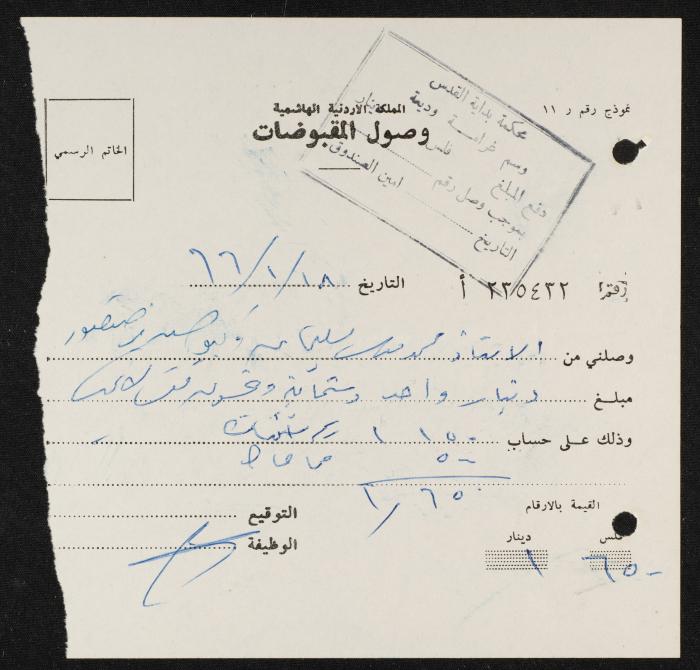 نموذج رقم ر ١١
المملكة الاردنية الهاشمية
وصول المقبوضات
الخاتم الرسمي
محكمة بداية القدس
رسم غرامة وديعة
دفع المبلغ فلس دينار
بموجب وصل رقم
التاريخ امين الصندوق
رقم أ ٢٣٥٤٣٢ التاريخ ٦٦/١/١٨
وصلني من الاستاذ
مبلغ دينار واحد وستماية وخمسون فلس
وذلك على حساب ١ ١٥٠
٥٠
١/٦٥٠
القيمة بالارقام
التوقيع
فلس دينار
الوظيفة
٦٥٠ ١